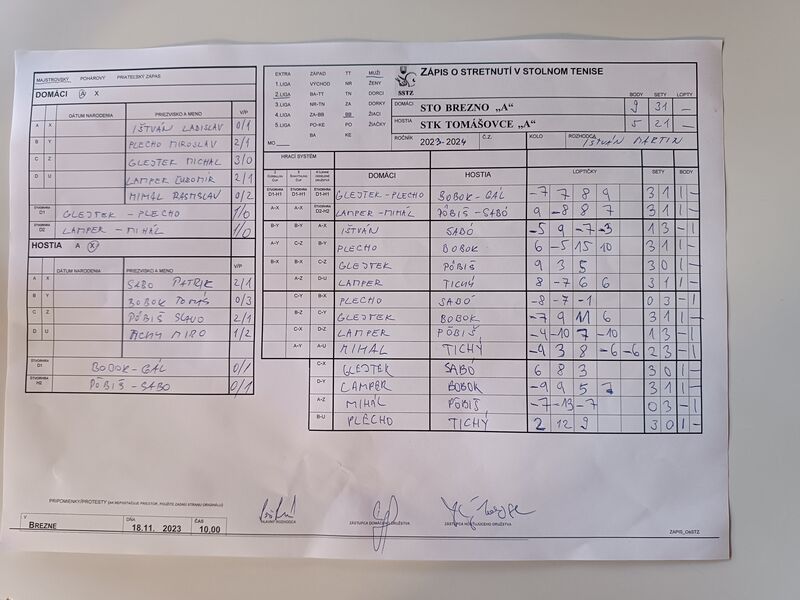 MAJSTROVSKÝ POHÁROVÝ PRIATEĽSKÝ ZÁPAS
DOMÁCI A X
DÁTUM NARODENIA PRIEZVISKO A MENO V/P
A X IŠTVÁN LADISLAV 0/1
B Y PLECHO MIROSLAV 2/1
C Z GLEJTEK MICHAL 3/0
D U LAMPER ĽUBOMÍR 2/1
MIHÁL RASTISLAV 0/2
ŠTVORHRA D1 GLEJTEK - PLECHO 1/0
ŠTVORHRA D2 LAMPER - MIHÁL 1/0
HOSTIA A X
DÁTUM NARODENIA PRIEZVISKO A MENO V/P
A X SABO PATRIK 2/1
B Y BOBOK TOMÁŠ 0/3
C Z PÔBIŠ SLAVO 2/1
D U TICHÝ MIRO 1/2
ŠTVORHRA D1 BOBOK - GÁL 0/1
ŠTVORHRA H2 PÔBIŠ - SABO 0/1
EXTRA ZÁPAD TT MUŽI
1.LIGA VÝCHOD NR ŽENY
2.LIGA BA-TT TN DORCI
3.LIGA NR-TN ZA DORKY
4.LIGA ZA-BB BB ŽIACI
5.LIGA PO-KE PO ŽIAČKY
BA KE
MO
SSTZ
ZÁPIS O STRETNUTÍ V STOLNOM TENISE
BODY SETY LOPTY
DOMÁCI STO BREZNO „A" 9 31 —
HOSTIA STK TOMÁŠOVCE „A" 5 21 —
ROČNÍK 2023-2024 Č.Z. KOLO ROZHODCA IŠTVÁN MARTIN
HRACÍ SYSTÉM
DOMÁCI HOSTIA LOPTIČKY SETY BODY
ŠTVORHRA D1-H1 ŠTVORHRA D1-H1 ŠTVORHRA D1-H1 GLEJTEK - PLECHO BOBOK - GÁL -7 7 8 9 3 1 1 -
A-X A-X ŠTVORHRA D2-H2 LAMPER - MIHÁL PÔBIŠ - SABÓ 9 -8 8 7 3 1 1 -
B-Y B-Y A-X IŠTVÁN SABÓ -5 9 -7 -3 1 3 - 1
A-Y C-Z B-Y PLECHO BOBOK 6 -5 15 10 3 1 1 -
B-X B-X C-Z GLEJTEK PÔBIŠ 9 3 5 3 0 1 -
A-Z D-U LAMPER TICHÝ 8 -7 6 6 3 1 1 -
C-Y B-X PLECHO SABÓ -8 -7 -1 0 3 - 1
B-Z C-Y GLEJTEK BOBOK -7 9 11 6 3 1 1 -
C-X D-Z LAMPER PÔBIŠ -4 -10 7 -10 1 3 - 1
A-Y A-U MIHÁL TICHÝ -9 3 8 -6 -6 2 3 - 1
C-X GLEJTEK SABÓ 6 8 3 3 0 1 -
D-Y LAMPER BOBOK -9 9 5 7 3 1 1 -
A-Z MIHÁL PÔBIŠ -7 -13 -7 0 3 - 1
B-U PLECHO TICHÝ 2 12 9 3 0 1 -
PRIPOMIENKY/PROTESTY
HLAVNÝ ROZHODCA ZÁSTUPCA DOMÁCEHO DRUŽSTVA ZÁSTUPCA HOSŤUJÚCEHO DRUŽSTVA
V BREZNE DŇA 18.11. 2023 ČAS 10,00
ZÁPIS_OSSTZ